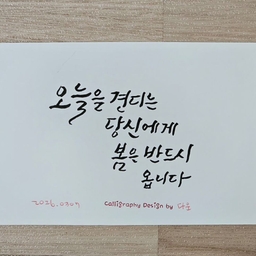 오늘을 견디는
당신에게
봄은 반드시
옵니다
Calligraphy Design by 다온